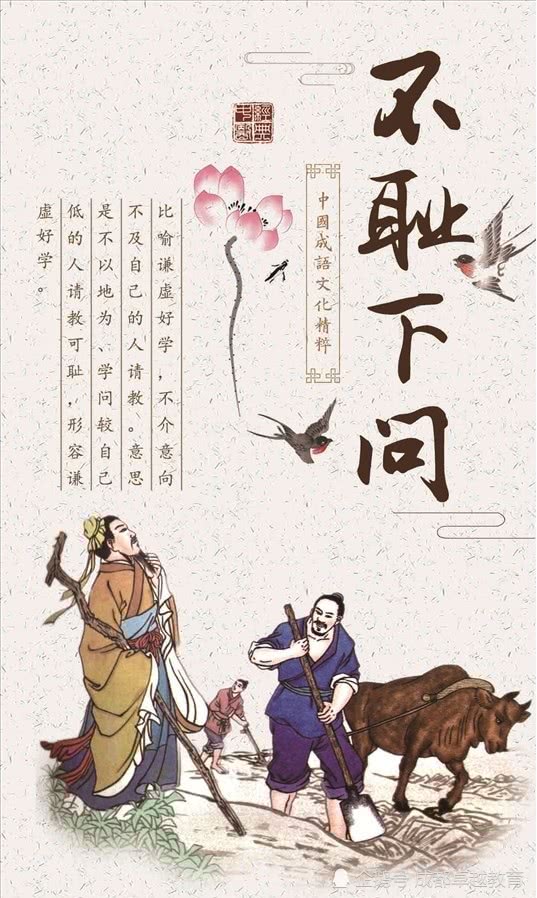 不耻下问
中國成語文化精粹
經典
比喻谦虚好学，不介意向
不及自己的人请教。意思
是不以地为、学问较自己
低的人请教可耻，形容谦
虚好学。
企鹅号 成都卓越教育